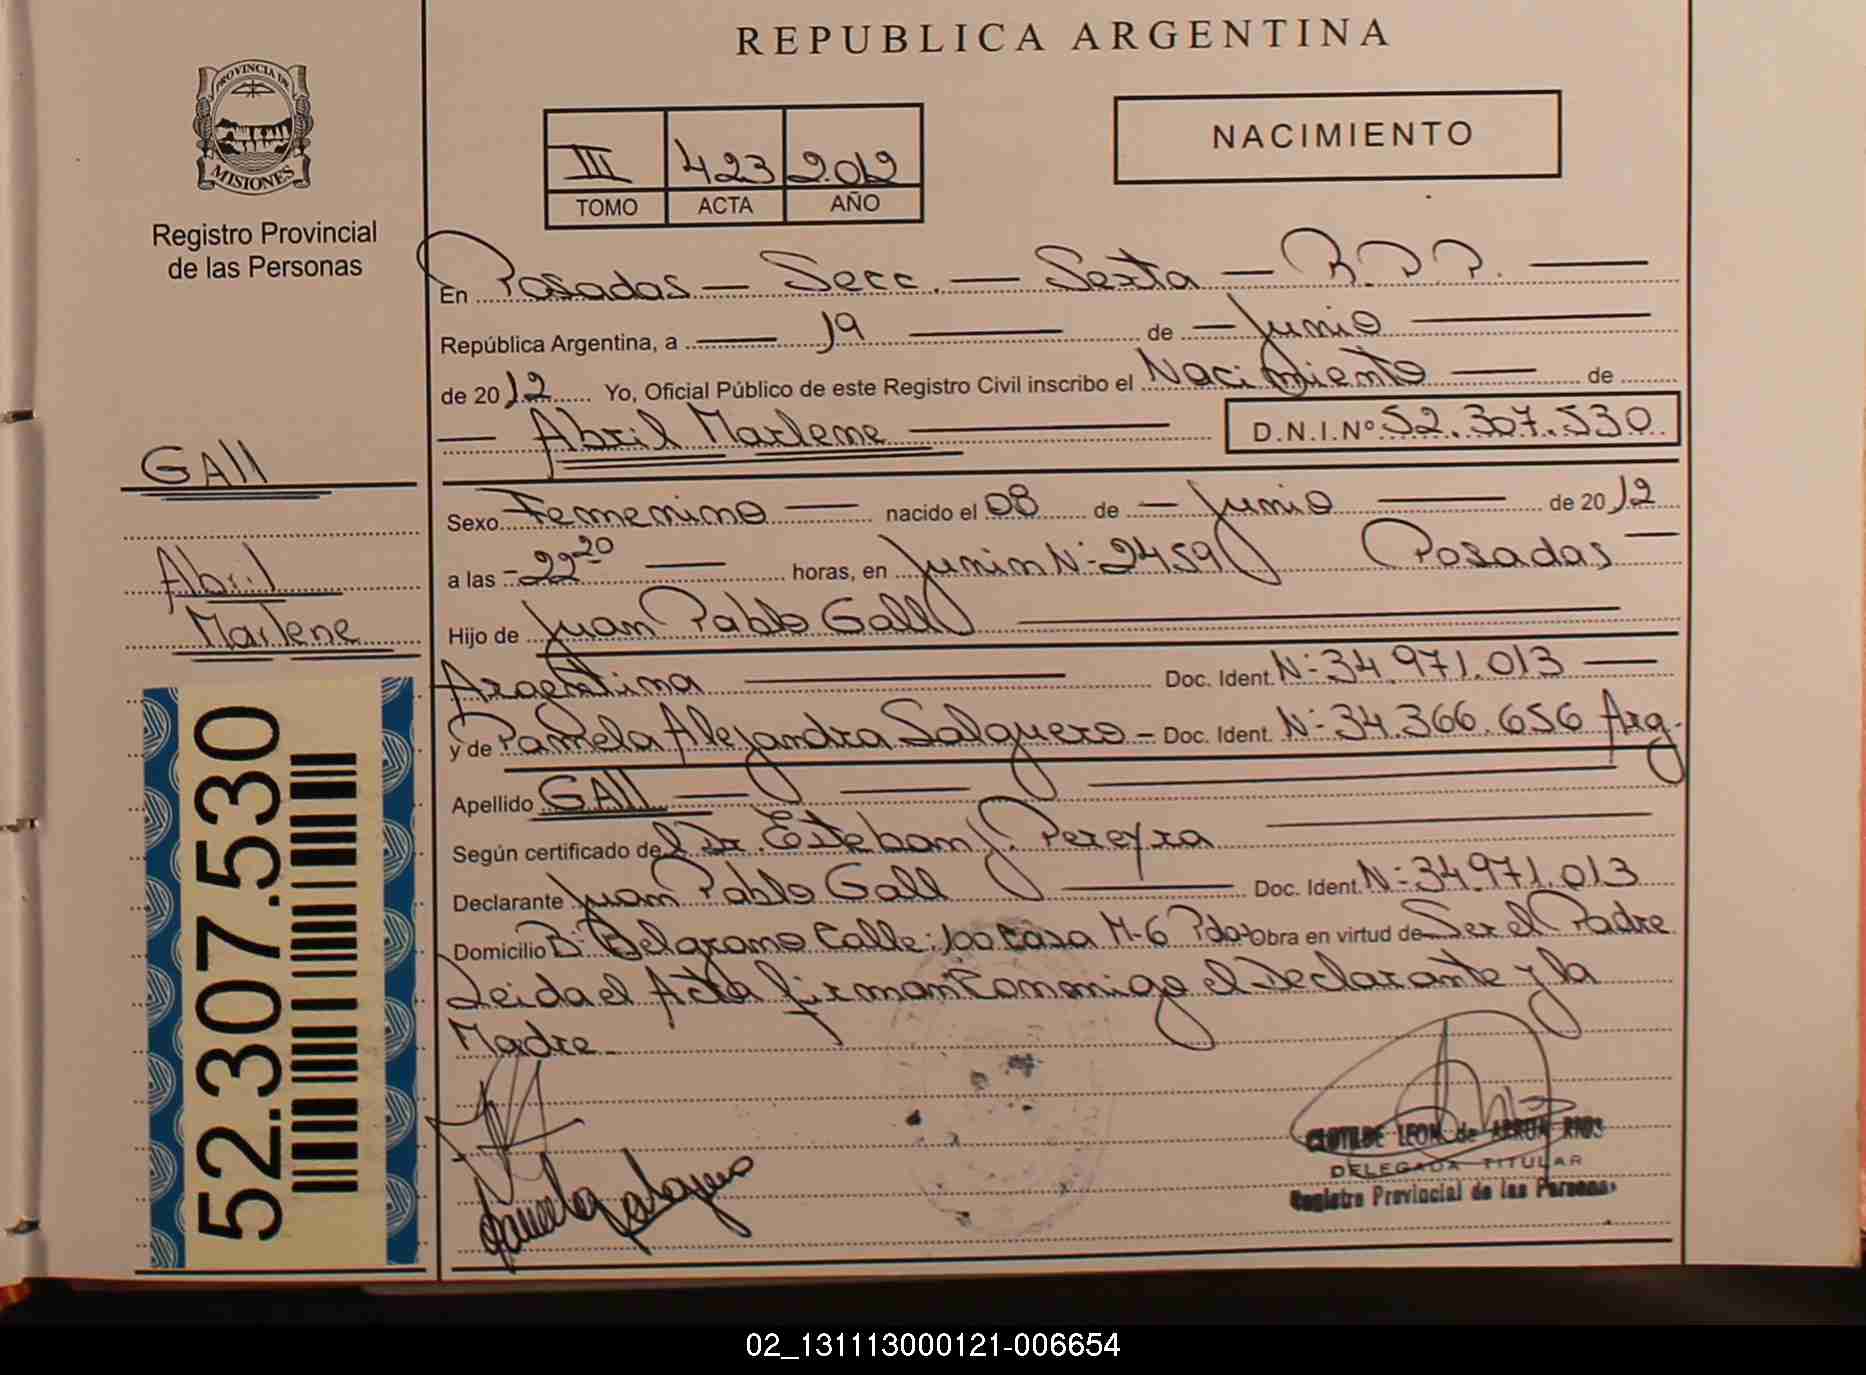 REPUBLICA ARGENTINA
PROVINCIA DE
MISIONES
Registro Provincial
de las Personas
III 423 2.012
TOMO ACTA AÑO
NACIMIENTO
En Posadas — Secc. — Sexta — R.P.P. —
República Argentina, a — 19 — de — Junio —
de 2012 Yo, Oficial Público de este Registro Civil inscribo el Nacimiento — de
— Abril Marlene — D.N.I.Nº 52.307.530
GAll
Abril
Marlene
52.307.530
Sexo Femenino — nacido el 08 de — Junio — de 2012
a las -22 20 — horas, en Junin N:-2459 Posadas —
Hijo de Juan Pablo Gall —
Argentina — Doc. Ident. N:-34.971.013 —
y de Pamela Alejandra Salguero - Doc. Ident. N:-34.366.656 Arg.
Apellido GAll — — —
Según certificado del Dr. Esteban J. Pereyra —
Declarante Juan Pablo Gall — Doc. Ident. N:-34.971.013
Domicilio B: Belgrano Calle: 100 Casa M-6 Pdas Obra en virtud de Ser el Padre
Leida el Acta firman Conmigo el Declarante y la
Madre.
Pamela Salguero
CLOTILDE LEON de RIOS
DELEGADA TITULAR
Registro Provincial de las Personas
02_131113000121-006654